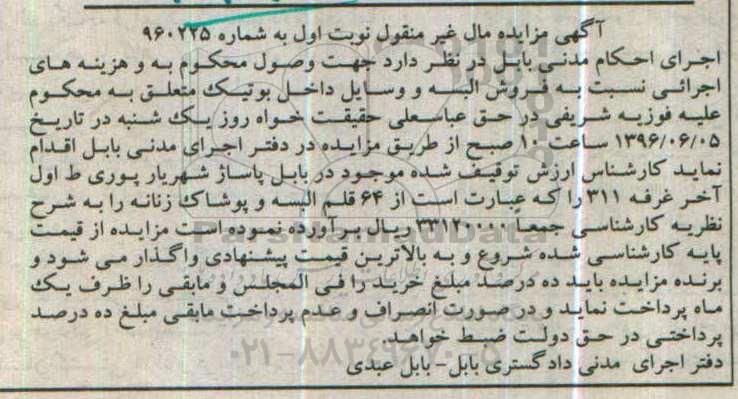 آگهی مزایده مال غیر منقول نوبت اول به شماره ۹۶۰۲۲۵
اجرای احکام مدنی بابل در نظر دارد جهت وصول محکوم به و هزینه های
اجرائی نسبت به فروش البسه و وسایل داخل بوتیک متعلق به محکوم
علیه فوزیه شریفی در حق عباسعلی حقیقت خواه روز یک شنبه در تاریخ
۱۳۹۶/۰۶/۰۵ ساعت ۱۰ صبح از طریق مزایده در دفتر اجرای مدنی بابل اقدام
نماید کارشناس ارزش توقیف شده موجود در بابل پاساژ شهریار پوری ط اول
آخر غرفه ۳۱۱ را که عبارت است از ۶۴ قلم البسه و پوشاک زنانه را به شرح
نظریه کارشناسی جمعا ۳۳۱۲۰۰۰۰ ریال برآورده نموده است مزایده از قیمت
پایه کارشناسی شده شروع و به بالاترین قیمت پیشنهادی واگذار می شود و
برنده مزایده باید ده درصد مبلغ خرید را فی المجلس و مابقی را ظرف یک
ماه پرداخت نماید و در صورت انصراف و عدم پرداخت مابقی مبلغ ده درصد
پرداختی در حق دولت ضبط خواهد.
دفتر اجرای مدنی دادگستری بابل- بابل عبدی
ParsNamadData
۰۲۱-۸۸۳۴۹۶۷۰-۵